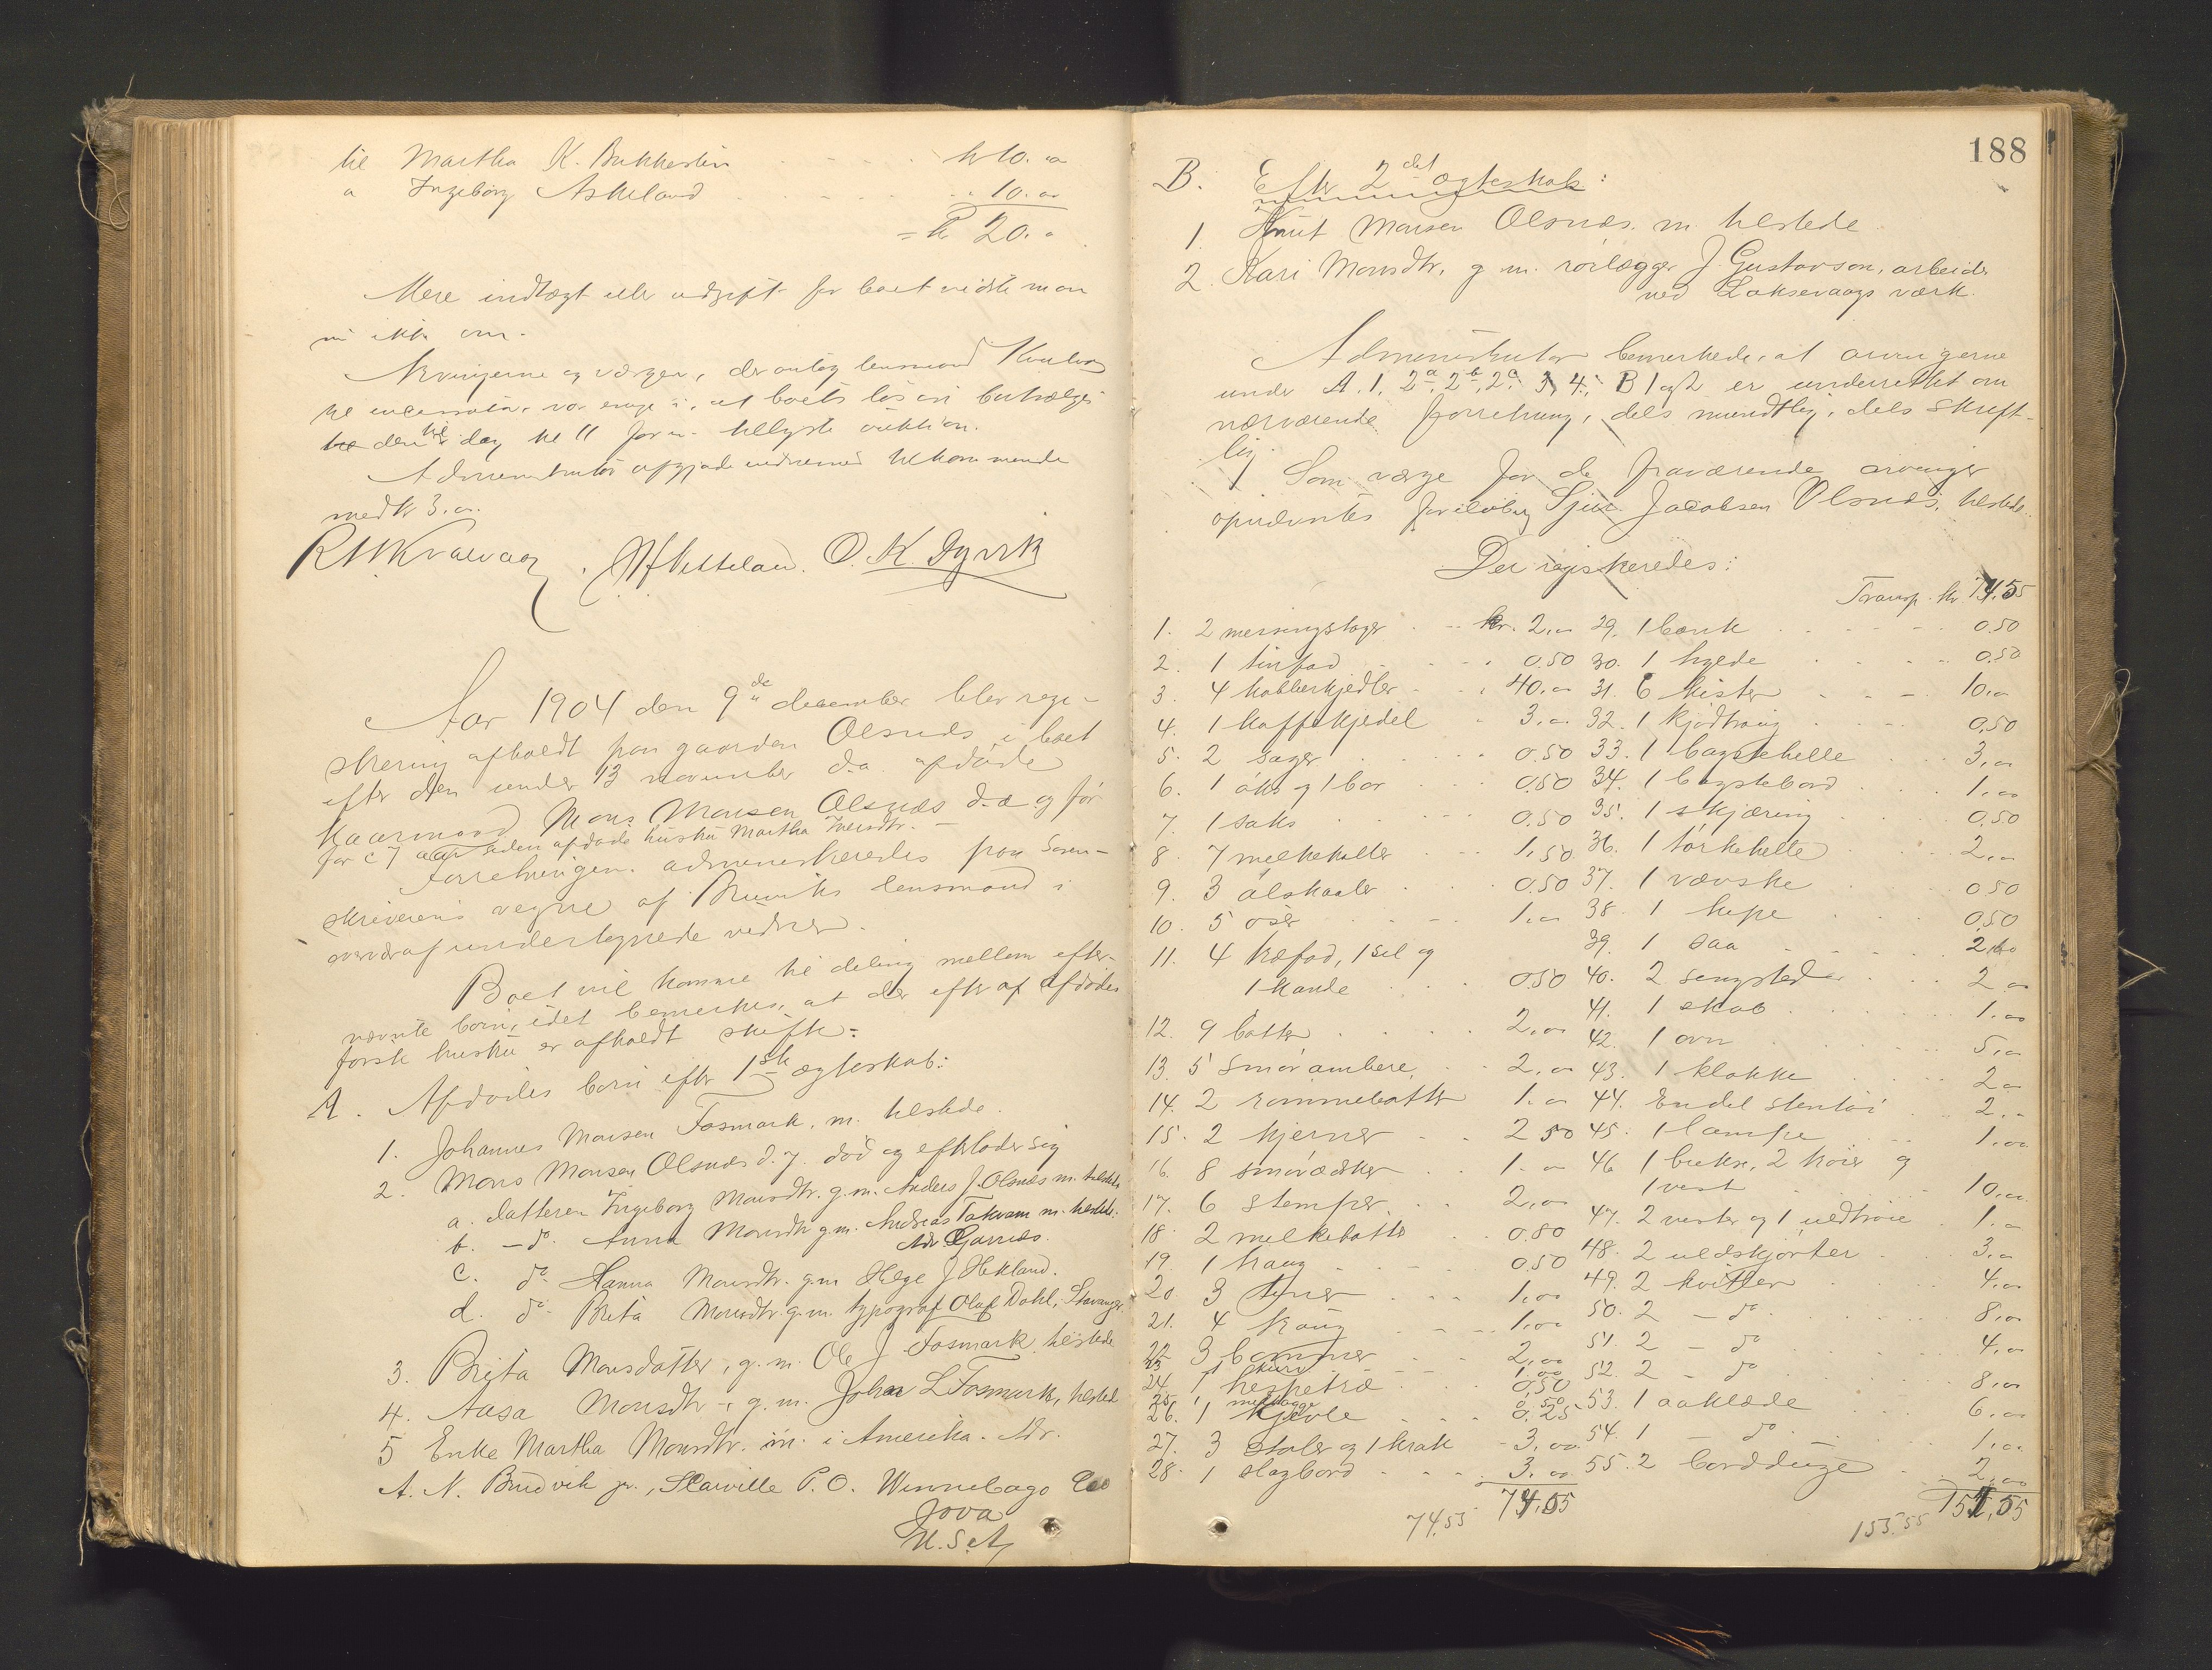 til Martha K. Bukkesten kr 10.00
" Ingeborg Askeland " 10.00
= kr 20.00
Mere indtægt eller udgift for boet vidste man
ni ikke om.
Arvingerne og værgen, der antog lensmand Kvalvaag
til incassator, var enige i, at boets løsøre bortsælges
den dag kl 11 form. tillyste auktion.
Administrator afgjorde vidnernes tilkommende
med kr 3.00.
R M Kvalvaag . O. K. Dyvik
Aar 1904 den 9de december blev regi-
strering afholdt paa gaarden Olsnæs i boet
efter den under 13 november d.a. afdøde
kaarmand Mons Monsen Olsnæs d.æ. og før
for c 7 aar siden afdøde hustru Martha Iversdtr. -
Forretningen administreredes paa Soren-
skriverens vegne af Bruviks lensmand i
overvær af undertegnede vidner.
Boet vil komme til deling mellem efter-
nævnte børn, idet bemerkes, at der efter afdødes
første hustru er afholdt skifte:
A. Afdødes børn efter 1ste ægteskab:
1. Johannes Monsen Fosmark, m. tilstede.
2. Mons Monsen Olsnæs d.y. død og efterlader sig
a. datteren Ingeborg Monsdtr. g.m. Anders J. Olsnæs m. tilstede
b. - do. Anna Monsdtr g.m. Andreas Takvam m. tilstede.
Adr. Garnæs.
c. do Hanna Monsdtr. g.m Helge J Hekland.
d. do. Brita Monsdtr. g.m. typograf Olaf Dahl, Stavanger.
3. Brita Monsdatter, g.m. Ole J Fosmark, tilstede
4. Aasa Monsdtr -, g.m. Johan L Fosmark, tilsted
5 Enke Martha Monsdtr. m. i Amerika. Adr.
A. N. Brudvik jr., Scarville P.O. Winnebago Co
Jova
U.S.A,
188
B. Efter 2det ægteskab:
1. Knut Monsen Olsnæs. m. tilstede.
2. Kari Monsdtr. g.m. rørlægger J. Gustavson, arbeider
ved Laksevaags værk.
Administrator bemerkede, at arvingerne
under A. 1, 2a, 2b, 2c, 3, 4, B 1 og 2 er underrettet om
nærværende forretning, dels mundtlig, dels skrift-
lig.
Som værge for de fraværende arvinger
opnævntes foreløbig Sjur Jacobsen Olsnæs, tilstede.
Der registreredes:
Transp. kr. 74.55
1. 2 messingstager kr. 2,00 29. 1 bænk 0.50
2. 1 tinfad 0.50 30. 1 hylde 0.50
3. 4 kobberkjedler 40,00 31. 6 kister 10,00
4. 1 kaffekjedel 3,00 32. 1 kjødtraug 0,50
5. 2 sager 0.50 33. 1 bagstehelle 3,00
6. 1 øks og 1 bor 0,50 34. 1 bagstebord 1,00
7. 1 saks 0.50 35. 1 skjæring 0,50
8. 7 melkekoller 1,50 36. 1 tørkehelle 2,00
9. 3 ølskaaler 0,50 37. 1 vævske 0 50
10. 5 øser 1.00 38. 1 hupe 0,50
11. 4 træfad, 1 sil og 39. 1 saa 2,00
1 kande 0.50 40. 2 sengsteder 2 00
12. 9 bøtter 2,00 41. 1 skab 1.00
42. 1 ovn 5,00
13. 5 smørambere, 2,00 43. 1 klokke 2 00
14. 2 rømmebøtter 1.00 44. Endel stentøi 2.00
15. 2 kjerner 2 50 45. 1 lampe 1.00
16. 8 smørædsker 1.00 46 1 bukse, 2 trøier og
17. 6 stemper 2,00 1 vest 10,00
18. 2 melkebøtter 0.80 47. 2 vester og 1 uldtrøie 1.00
19. 1 traug 0.50 48. 2 uldskjorter 3.00
20. 3 tiner 1,00 49. 2 kvitler 4,00
21. 4 traug 1,00 50. 2 - do 8,00
22 3 bommer 2,00 51. 2 - do 4,00
23 1 kurv 1,00 52. 2 - do 8,00
24. 1 hespetræ 0,50
25. 1 0.50 53. 1 aaklæde 6,00
26. 1 kjevle 0.25 54. 1 - do 1,00
27. 3 stoler og 1 krak 3,00 55. 2 bordduge 2,00
28. 1 slagbord 3,00
74.55 74.55 153.55 151,55